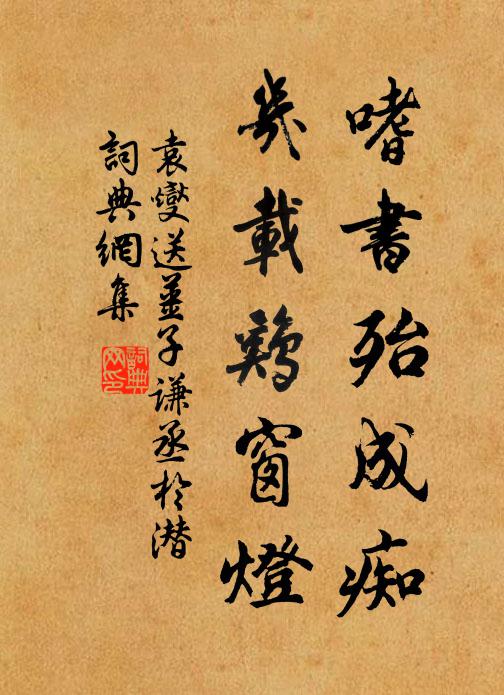 嗜書殆成痴
幾載鷄窗燈
袁燮送薑子謙丞於潜
詞典網集
詞典網印